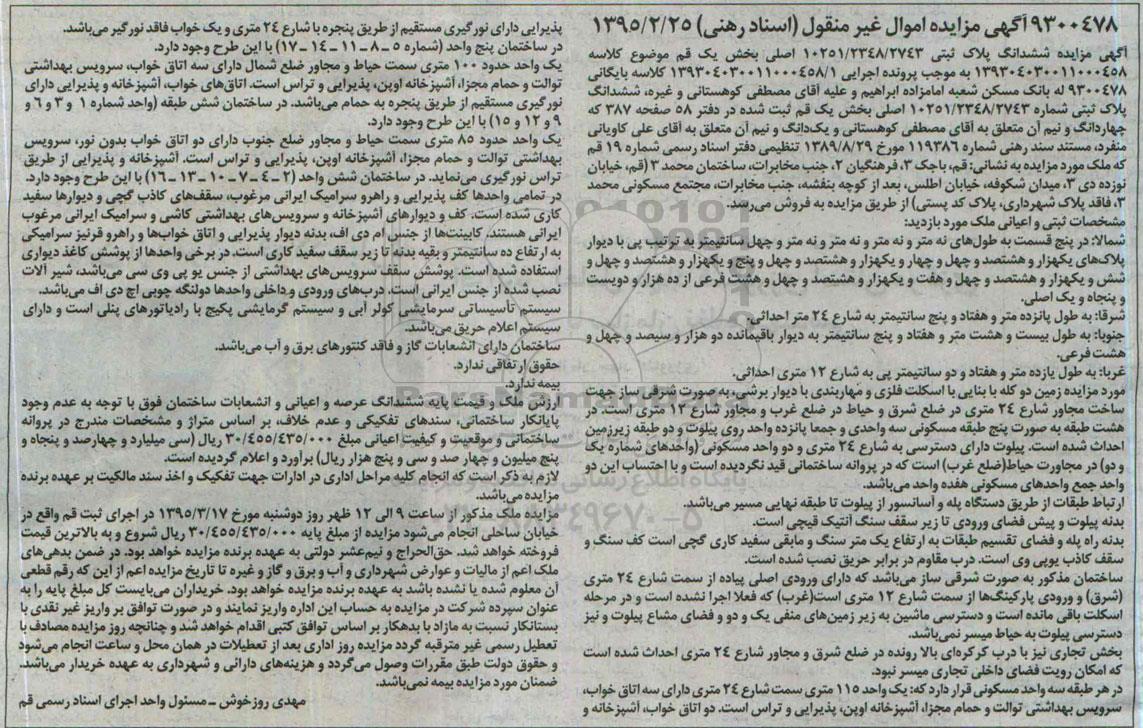 ۹۳۰۰۴۷۸ آگهی مزایده اموال غیر منقول (اسناد رهنی) ۱۳۹۵/۲/۲۵
آگهی مزایده ششدانگ پلاک ثبتی ۱۰۲۵۱/۲۳۴۸/۲۷۴۳ اصلی بخش یک قم موضوع کلاسه
۱۳۹۳۰۴۰۳۰۰۱۱۰۰۰۴۵۸ به موجب پرونده اجرایی ۱۳۹۳۰۴۰۳۰۰۱۱۰۰۰۴۵۸/۱ کلاسه بایگانی
۹۳۰۰۴۷۸ له بانک مسکن شعبه امامزاده ابراهیم و علیه آقای مصطفی کوهستانی و غیره، ششدانگ
پلاک ثبتی شماره ۱۰۲۵۱/۲۳۴۸/۲۷۴۳ اصلی بخش یک قم ثبت شده در دفتر ۵۸ صفحه ۳۸۷ که
چهاردانگ و نیم آن متعلق به آقای مصطفی کوهستانی و یک‌دانگ و نیم آن متعلق به آقای علی کاویانی
منفرد، مستند سند رهنی شماره ۱۱۹۳۸۶ مورخ ۱۳۸۹/۸/۲۹ تنظیمی دفتر اسناد رسمی شماره ۱۹ قم
که ملک مورد مزایده به نشانی: قم، باجک ۳، فرهنگیان ۲، جنب مخابرات، ساختمان محمد ۳ (قم، خیابان
نوزده دی ۳، میدان شکوفه، خیابان اطلس، بعد از کوچه بنفشه، جنب مخابرات، مجتمع مسکونی محمد
۳، فاقد پلاک شهرداری، پلاک کد پستی) از طریق مزایده به فروش می‌رسد.
مشخصات ثبتی و اعیانی ملک مورد بازدید:
شمالا: در پنج قسمت به طول‌های نه متر و نه متر و نه متر و نه متر و چهل سانتیمتر به ترتیب پی با دیوار
پلاک‌های یکهزار و هشتصد و چهل و چهار و یکهزار و هشتصد و چهل و پنج و یکهزار و هشتصد و چهل و
شش و یکهزار و هشتصد و چهل و هفت و یکهزار و هشتصد و چهل و هشت فرعی از ده هزار و دویست
و پنجاه و یک اصلی.
شرقا: به طول پانزده متر و هفتاد و پنج سانتیمتر به شارع ۲۴ متر احداثی.
جنوبا: به طول بیست و هشت متر و هفتاد و پنج سانتیمتر به دیوار باقیمانده دو هزار و سیصد و چهل و
هشت فرعی.
غربا: به طول یازده متر و هفتاد و دو سانتیمتر پی به شارع ۱۲ متری احداثی.
مورد مزایده زمین دو کله با بنایی با اسکلت فلزی و مهاربندی با دیوار برشی به صورت شرقی ساز جهت
ساخت مجاور شارع ۲۴ متری در ضلع شرق و حیاط در ضلع غرب و مجاور شارع ۱۲ متری است. در
هشت طبقه به صورت پنج طبقه مسکونی سه واحدی و جمعا پانزده واحد روی پیلوت و دو طبقه زیرزمین
احداث شده است. پیلوت دارای دسترسی به شارع ۲۴ متری و دو واحد مسکونی (واحدهای شماره یک
و دو) در مجاورت حیاط(ضلع غرب) است که در پروانه ساختمانی قید نگردیده است و با احتساب این دو
واحد جمع واحدهای مسکونی هفده واحد می‌باشد.
ارتباط طبقات از طریق دستگاه پله و آسانسور از پیلوت تا طبقه نهایی مسیر می‌باشد.
بدنه پیلوت و پیش فضای ورودی تا زیر سقف سنگ آنتیک قیچی است.
بدنه راه پله و فضای تقسیم طبقات به ارتفاع یک متر سنگ و مابقی سفید کاری گچی است کف سنگ و
سقف کاذب یوپی وی است. درب مقاوم در برابر حریق نصب شده است.
ساختمان مذکور به صورت شرقی ساز می‌باشد که دارای ورودی اصلی پیاده از سمت شارع ۲۴ متری
(شرق) و ورودی پارکینگ‌ها از سمت شارع ۱۲ متری است(غرب) که فعلا اجرا نشده است و در مرحله
اسکلت باقی مانده است و دسترسی ماشین به زیر زمین‌های منفی یک و دو و فضای مشاع پیلوت و نیز
دسترسی پیلوت به حیاط میسر نمی‌باشد.
بخش تجاری نیز با درب کرکره‌ای بالا رونده در ضلع شرق و مجاور شارع ۲۴ متری احداث شده است
که امکان رویت فضای داخلی تجاری میسر نبود.
در هر طبقه سه واحد مسکونی قرار دارد که: یک واحد ۱۱۵ متری سمت شارع ۲۴ متری دارای سه اتاق خواب،
سرویس بهداشتی توالت و حمام مجزا، آشپزخانه اوپن، پذیرایی و تراس است. دو اتاق خواب، آشپزخانه و
پذیرایی دارای نورگیری مستقیم از طریق پنجره با شارع ۲۴ متری و یک خواب فاقد نورگیر می‌باشد.
در ساختمان پنج واحد (شماره ۵ – ۸ – ۱۱ – ۱۴ – ۱۷) با این طرح وجود دارد.
یک واحد حدود ۱۰۰ متری سمت حیاط و مجاور ضلع شمال دارای سه اتاق خواب، سرویس بهداشتی
توالت و حمام مجزا، آشپزخانه اوپن، پذیرایی و تراس است. اتاق‌های خواب، آشپزخانه و پذیرایی دارای
نورگیری مستقیم از طریق پنجره به حمام می‌باشد. در ساختمان شش طبقه (واحد شماره ۱ و ۳ و ۶ و
۹ و ۱۲ و ۱۵) با این طرح وجود دارد.
یک واحد حدود ۸۵ متری سمت حیاط و مجاور ضلع جنوب دارای دو اتاق خواب بدون نور، سرویس
بهداشتی توالت و حمام مجزا، آشپزخانه اوپن، پذیرایی و تراس است. آشپزخانه و پذیرایی از طریق
تراس نورگیری می‌نماید. در ساختمان شش واحد (۲ – ۴ – ۷ – ۱۰ – ۱۳ – ۱۶) با این طرح وجود دارد.
در تمامی واحدها کف پذیرایی و راهرو سرامیک ایرانی مرغوب، سقف‌های کاذب گچی و دیوارها سفید
کاری شده است. کف و دیوارهای آشپزخانه و سرویس‌های بهداشتی کاشی و سرامیک ایرانی مرغوب
ایرانی هستند. کابینت‌ها از جنس ام دی اف، بدنه دیوار پذیرایی و اتاق خواب‌ها و راهرو قرنیز سرامیکی
به ارتفاع ده سانتیمتر و بقیه بدنه تا زیر سقف سفید کاری است. در برخی واحدها از پوشش کاغذ دیواری
استفاده شده است. پوشش سقف سرویس‌های بهداشتی از جنس یو پی وی سی می‌باشد، شیر آلات
نصب شده از جنس ایرانی است. درب‌های ورودی و داخلی واحدها دولنگه چوبی اچ دی اف می‌باشد.
سیستم تأسیساتی سرمایشی کولر آبی و سیستم گرمایشی پکیج با رادیاتورهای پنلی است و دارای
سیستم اعلام حریق می‌باشد.
ساختمان دارای انشعابات گاز و فاقد کنتورهای برق و آب می‌باشد.
حقوق ارتفاقی ندارد.
بیمه ندارد.
ارزش ملک و قیمت پایه ششدانگ عرصه و اعیانی و انشعابات ساختمان فوق با توجه به عدم وجود
پایانکار ساختمانی، سندهای تفکیکی و عدم خلاف، بر اساس متراژ و مشخصات مندرج در پروانه
ساختمانی و موقعیت و کیفیت اعیانی مبلغ ۳۰/۴۵۵/۴۳۵/۰۰۰ ریال (سی میلیارد و چهارصد و پنجاه و
پنج میلیون و چهار صد و سی و پنج هزار ریال) برآورد و اعلام گردیده است.
لازم به ذکر است که انجام کلیه مراحل اداری در ادارات جهت تفکیک و اخذ سند مالکیت بر عهده برنده
مزایده می‌باشد.
مزایده ملک مذکور از ساعت ۹ الی ۱۲ ظهر روز دوشنبه مورخ ۱۳۹۵/۳/۱۷ در اجرای ثبت قم واقع در
خیابان ساحلی انجام می‌شود مزایده از مبلغ پایه ۳۰/۴۵۵/۴۳۵/۰۰۰ ریال شروع و به بالاترین قیمت
فروخته خواهد شد. حق‌الحراج و نیم‌عشر دولتی به عهده برنده مزایده خواهد بود. در ضمن بدهی‌های
ملک اعم از مالیات و عوارض شهرداری و آب و برق و گاز و غیره تا تاریخ مزایده اعم از این که رقم قطعی
آن معلوم شده یا نشده باشد به عهده برنده مزایده خواهد بود. خریداران می‌بایست کل مبلغ پایه را به
عنوان سپرده شرکت در مزایده به حساب این اداره واریز نمایند و در صورت توافق بر واریز غیر نقدی با
بستانکار نسبت به مازاد با بدهکار بر اساس توافق کتبی اقدام خواهد شد و چنانچه روز مزایده مصادف با
تعطیل رسمی غیر مترقبه گردد مزایده روز اداری بعد از تعطیلات در همان محل و ساعت انجام می‌شود
و حقوق دولت طبق مقررات وصول می‌گردد و هزینه‌های دارائی و شهرداری به عهده خریدار می‌باشد.
ضمنان مورد مزایده بیمه نمی‌باشد.
مهدی روزخوش – مسئول واحد اجرای اسناد رسمی قم